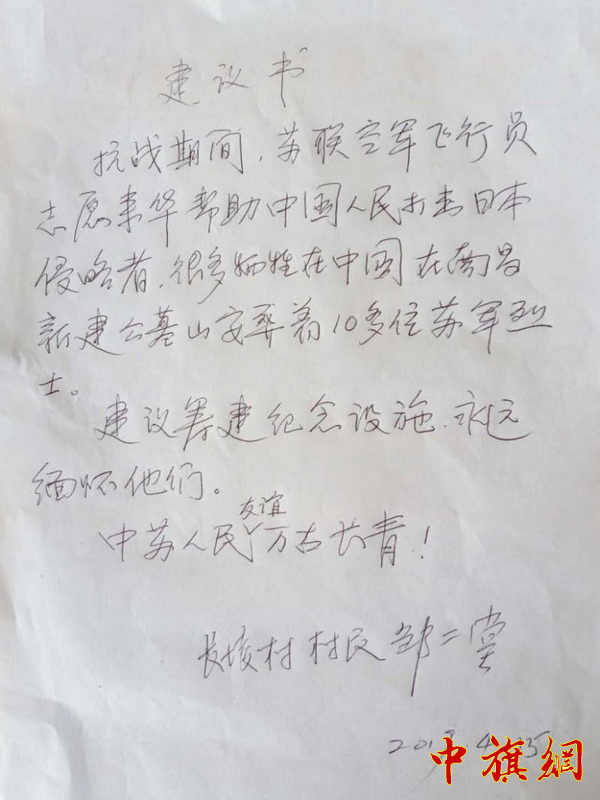 建议书
抗战期间，苏联空军飞行员
志愿来华帮助中国人民打击日本
侵略者，很多牺牲在中国在南昌
新建公墓山安葬着10多位苏军烈
士。
建议筹建纪念设施，永远
缅怀他们。
中苏人民友谊万古长青！
长堎村村民邹二堂
中旗網